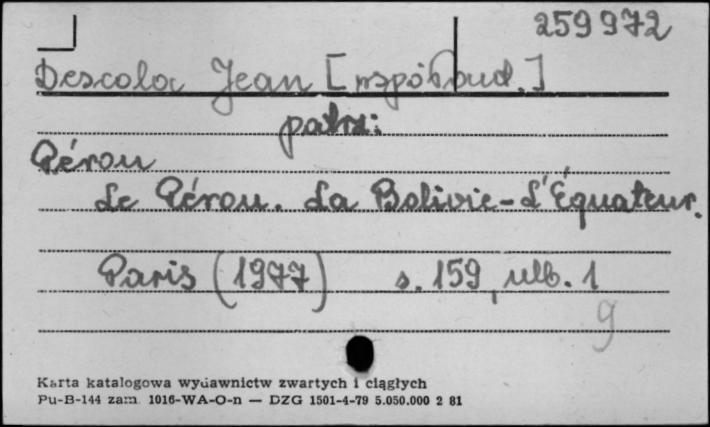 259972
Descola Jean [współaud.]
patrz:
Pérou
Le Pérou. La Bolivie-L'Équateur.
Paris (1977) s. 159, ulb. 1
9
Karta katalogowa wydawnictw zwartych i ciągłych
Pu-B-144 zam. 1016-WA-O-n — DZG 1501-4-79 5.050.000 2 81